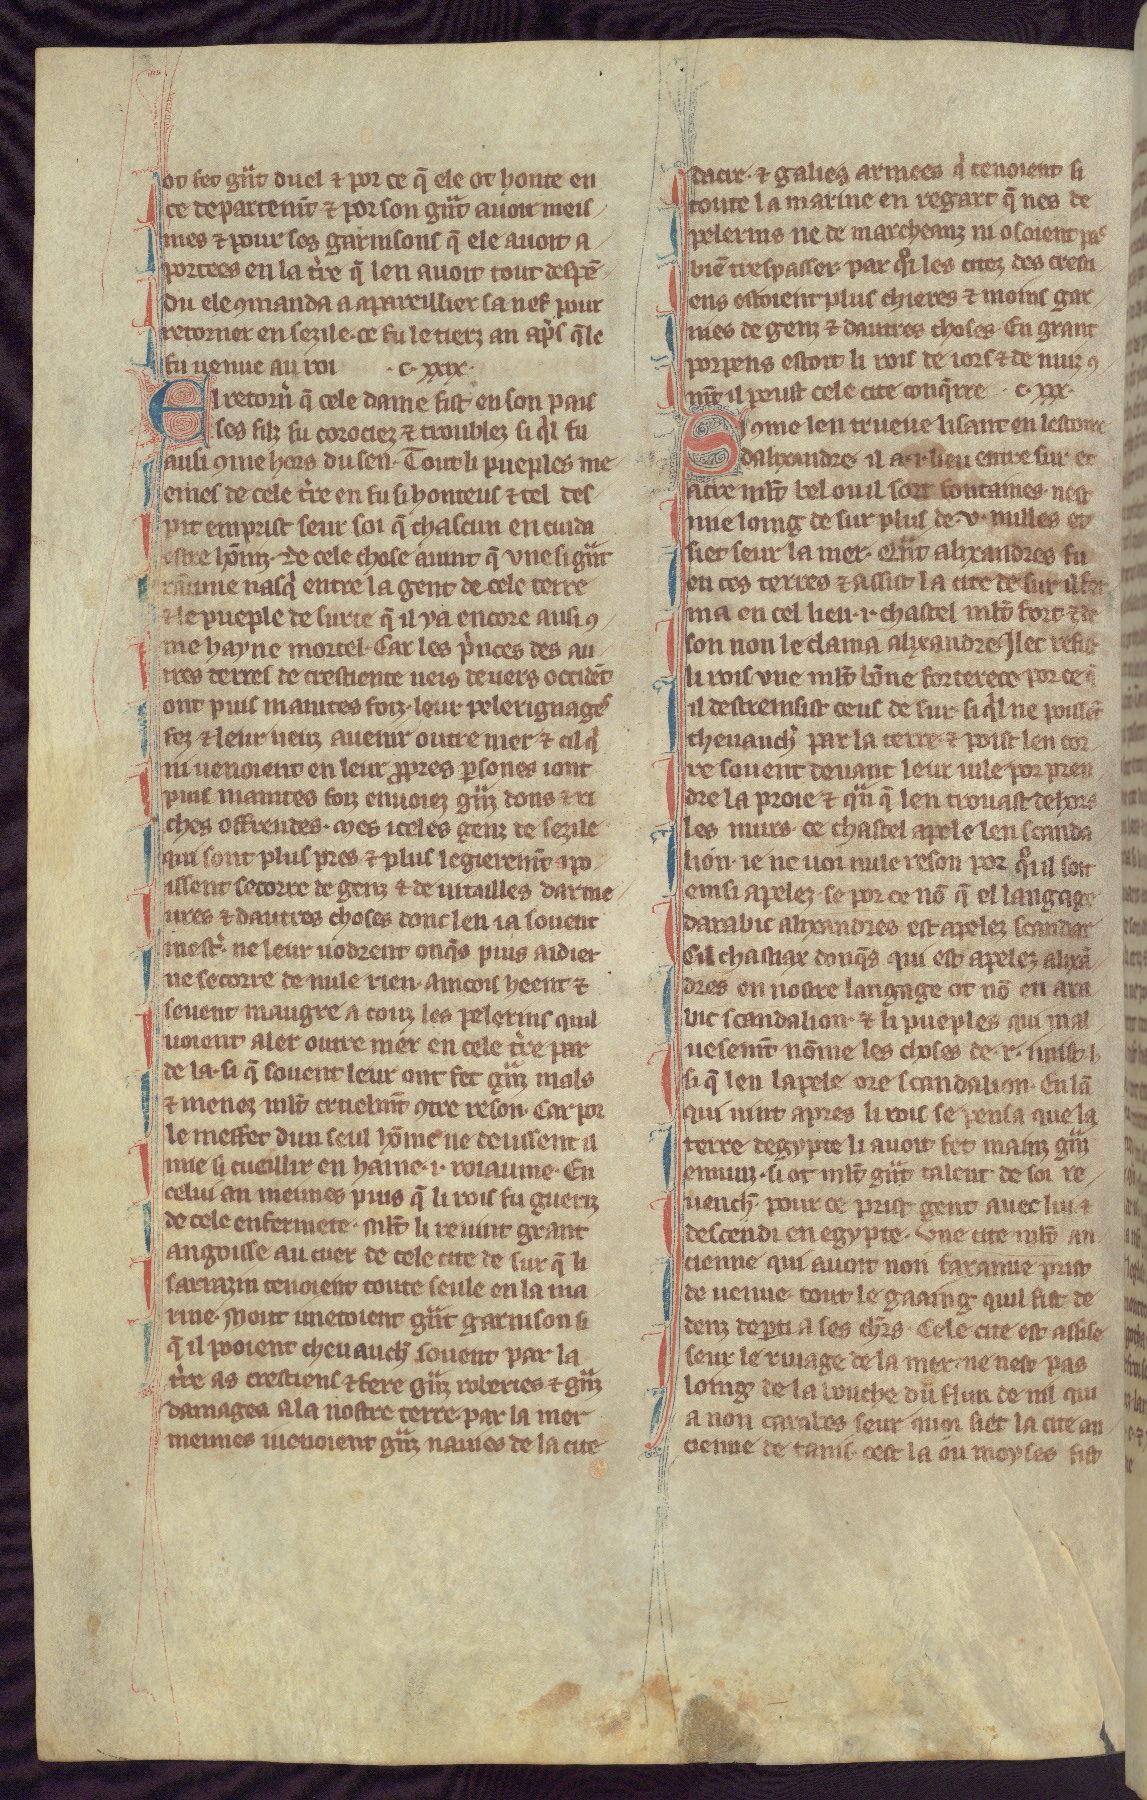 ot fet gñt duel ⁊ por ce q̃ ele ot honte en
ce departemt̃ ⁊ por son gñt auoir meis
mes ⁊ pour ses garnisons q̃ ele auoit a
portees en la t̃re q̃ len auoit tout despẽ
du ele ꝯmanda a apareillier sa nef pour
retorner en sezile · ce fu le tierz an ap̃s q̃le
fu uenue au roi · c · xxix ·
El retorñ q̃ cele dame fist en son païs
ses filz fu corociez ⁊ troublez si q̃l fu
ausi ꝯme hors du sen · Tout li pueples me
emes de cele t̃re en fu si honteus ⁊ tel des
pit emprist seur soi q̃ chascun en cuida
estre hõniz · De cele chose auint q̃ vne si gñt
rãcune nasq̃ entre la gent de cele terre
⁊ le pueple de surie q̃ il ya encore ausi ꝯ
me hayne mortel · Car les p̃nces des au
tres terres de crestiente ueis deuers occidẽt
ont puis maintes foiz · leur pelerignages
fez ⁊ leur ueuz auenir outre mer ⁊ cil q̃
ni uenoient en leur ꝓpres ꝑsones iont
puis maintes foiz enuoiez gñz dons ⁊ ri
ches offrendes · Mes iceles genz de sezile
qui sont plus pres ⁊ plus legieremt̃ apo
issent secorre de genz ⁊ de uitailles darme
ures ⁊ dautres choses donc len i a souent
mest̃ · ne leur uodrent onq̃s puis aidier
ne secorre de nule rien · Aincois heent ⁊
seuent maugre a touz les pelerins quil
uoient aler outre mer en cele t̃re par
de la · si q̃ souent leur ont fet gñz mals
⁊ menez ml̃t cruelmt̃ ꝯtre reson · Car por
le meffet dun seul hõme ne deussent il
mie si cueillir en haine · i · roiaume · En
celui an meimes puis q̃ li rois fu gueriz
de cele enfermete · Ml̃t li reuint grant
angoisse au cuer de cele cite de sur q̃ li
sarrazin tenoient toute seule en la ma
rine · Mout imetoient gñt garnison si
q̃ il pooient cheuauch̃ souent par la
t̃re as crestiens ⁊ fere gñz roberies ⁊ gñz
damages a la nostre terre · par la mer
meimes muuoient gñz nauies de la cite
dacre · ⁊ galies armees q̃ tenoient si
toute la marine en regart q̃ nes de
pelerins ne de marcheanz ni osoient pas
biẽ trespasser · par quoi les citez des cresti
ens estoient plus chieres ⁊ moins gar
nies de genz ⁊ dautres choses · En grant
porpens estoit li rois de iors ⁊ de nuiz ꝯ
mt̃ il peust cele cite conq̃rre · c · xxx ·
Si ꝯme len trueue lisant en lestoire
dalixandre · il a · i · lieu entre sur et
acre ml̃t bel ou il sort fontaines · nest
mie loing de sur plus de · v · milles et
siet seur la mer · Qñt alixandres fu
en ces terres ⁊ assist la cite de sur il fer
ma en cel lieu · i · chastel ml̃t fort · ⁊ de
son non le clama alixandre · Ilec refist
li rois vne ml̃t bõne forterece por ce q̃
il destreinsist ceus de sur · si q̃l ne poissẽt
cheuauch̃ par la terre · ⁊ poist len cor
re souent deuant leur uile por pren
dre la proie ⁊ qñ q̃ len trouast dehors
les murs · ce chastel apele len scanda
lion · ie ne uoi nule reson por quoi il soit
einsi apelez · se por ce nõ q̃ el langage
darabic alixandres est apelez scandar
Cil chastiax donq̃s qui est apelez alixã
dres en nostre langage ot nõ en ara
bic scandalion · ⁊ li pueples qui mal
uesemt̃ nõme les choses de · r · mist · l ·
si q̃ len lapele ore scandalion · En lã
qui uint apres li rois se pensa que la
terre degypte li auoit fet mainz gñz
ennuiz · si ot ml̃t gñt talent de soi re
uench̃ · pour ce prist gent auec lui ⁊
descendi en egypte · Vne cite ml̃t an
cienne qui auoit non faramie prist
de uenue · tout le gaaing quil fist de
denz departi a ses ch̃rs · Cele cite est assise
seur le riuage de la mer · ne nest pas
loing de la bouche du flun de nil qui
a non carabes seur quoi siet la cite an
cienne de tanis · cest la ou moyses fist